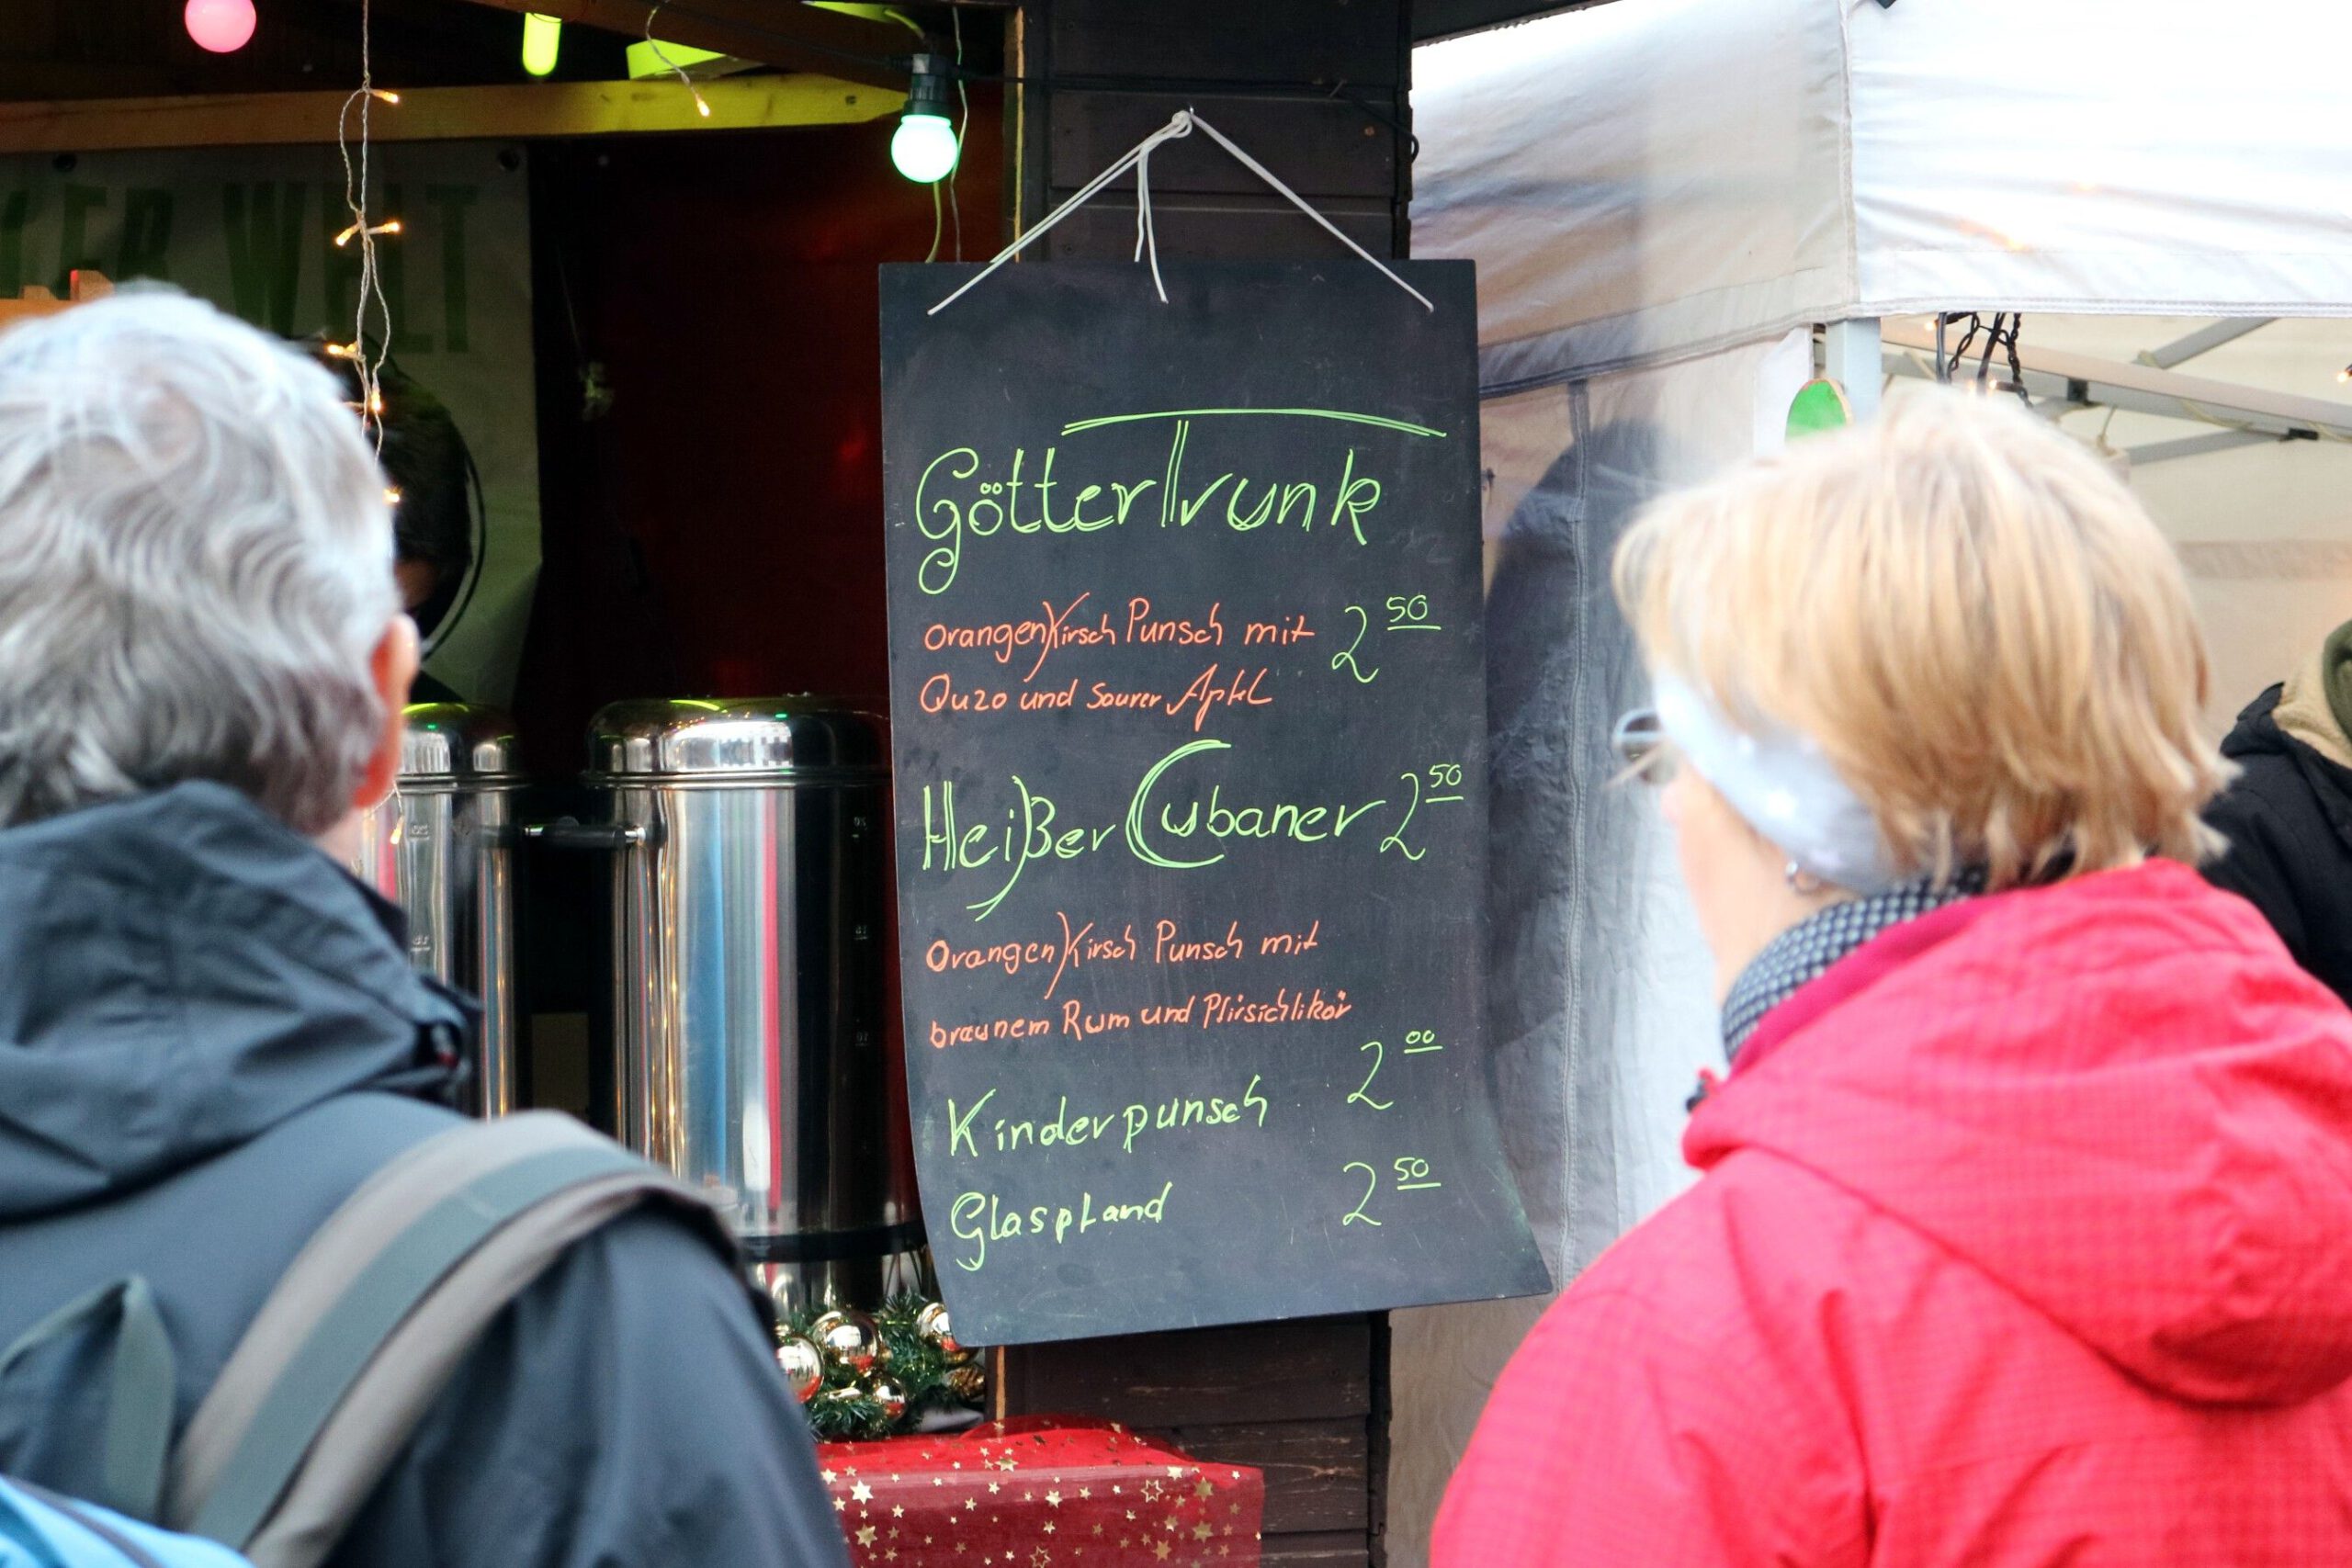 YER WELT
GötterTrunk
Orangen Kirsch Punsch mit 2 50
Quzo und Saurer Apfel
Heißer Cubaner 2 50
Orangen Kirsch Punsch mit
braunem Rum und Pfirsichlikör
2 00
Kinderpunsch
Glaspfand 2 50